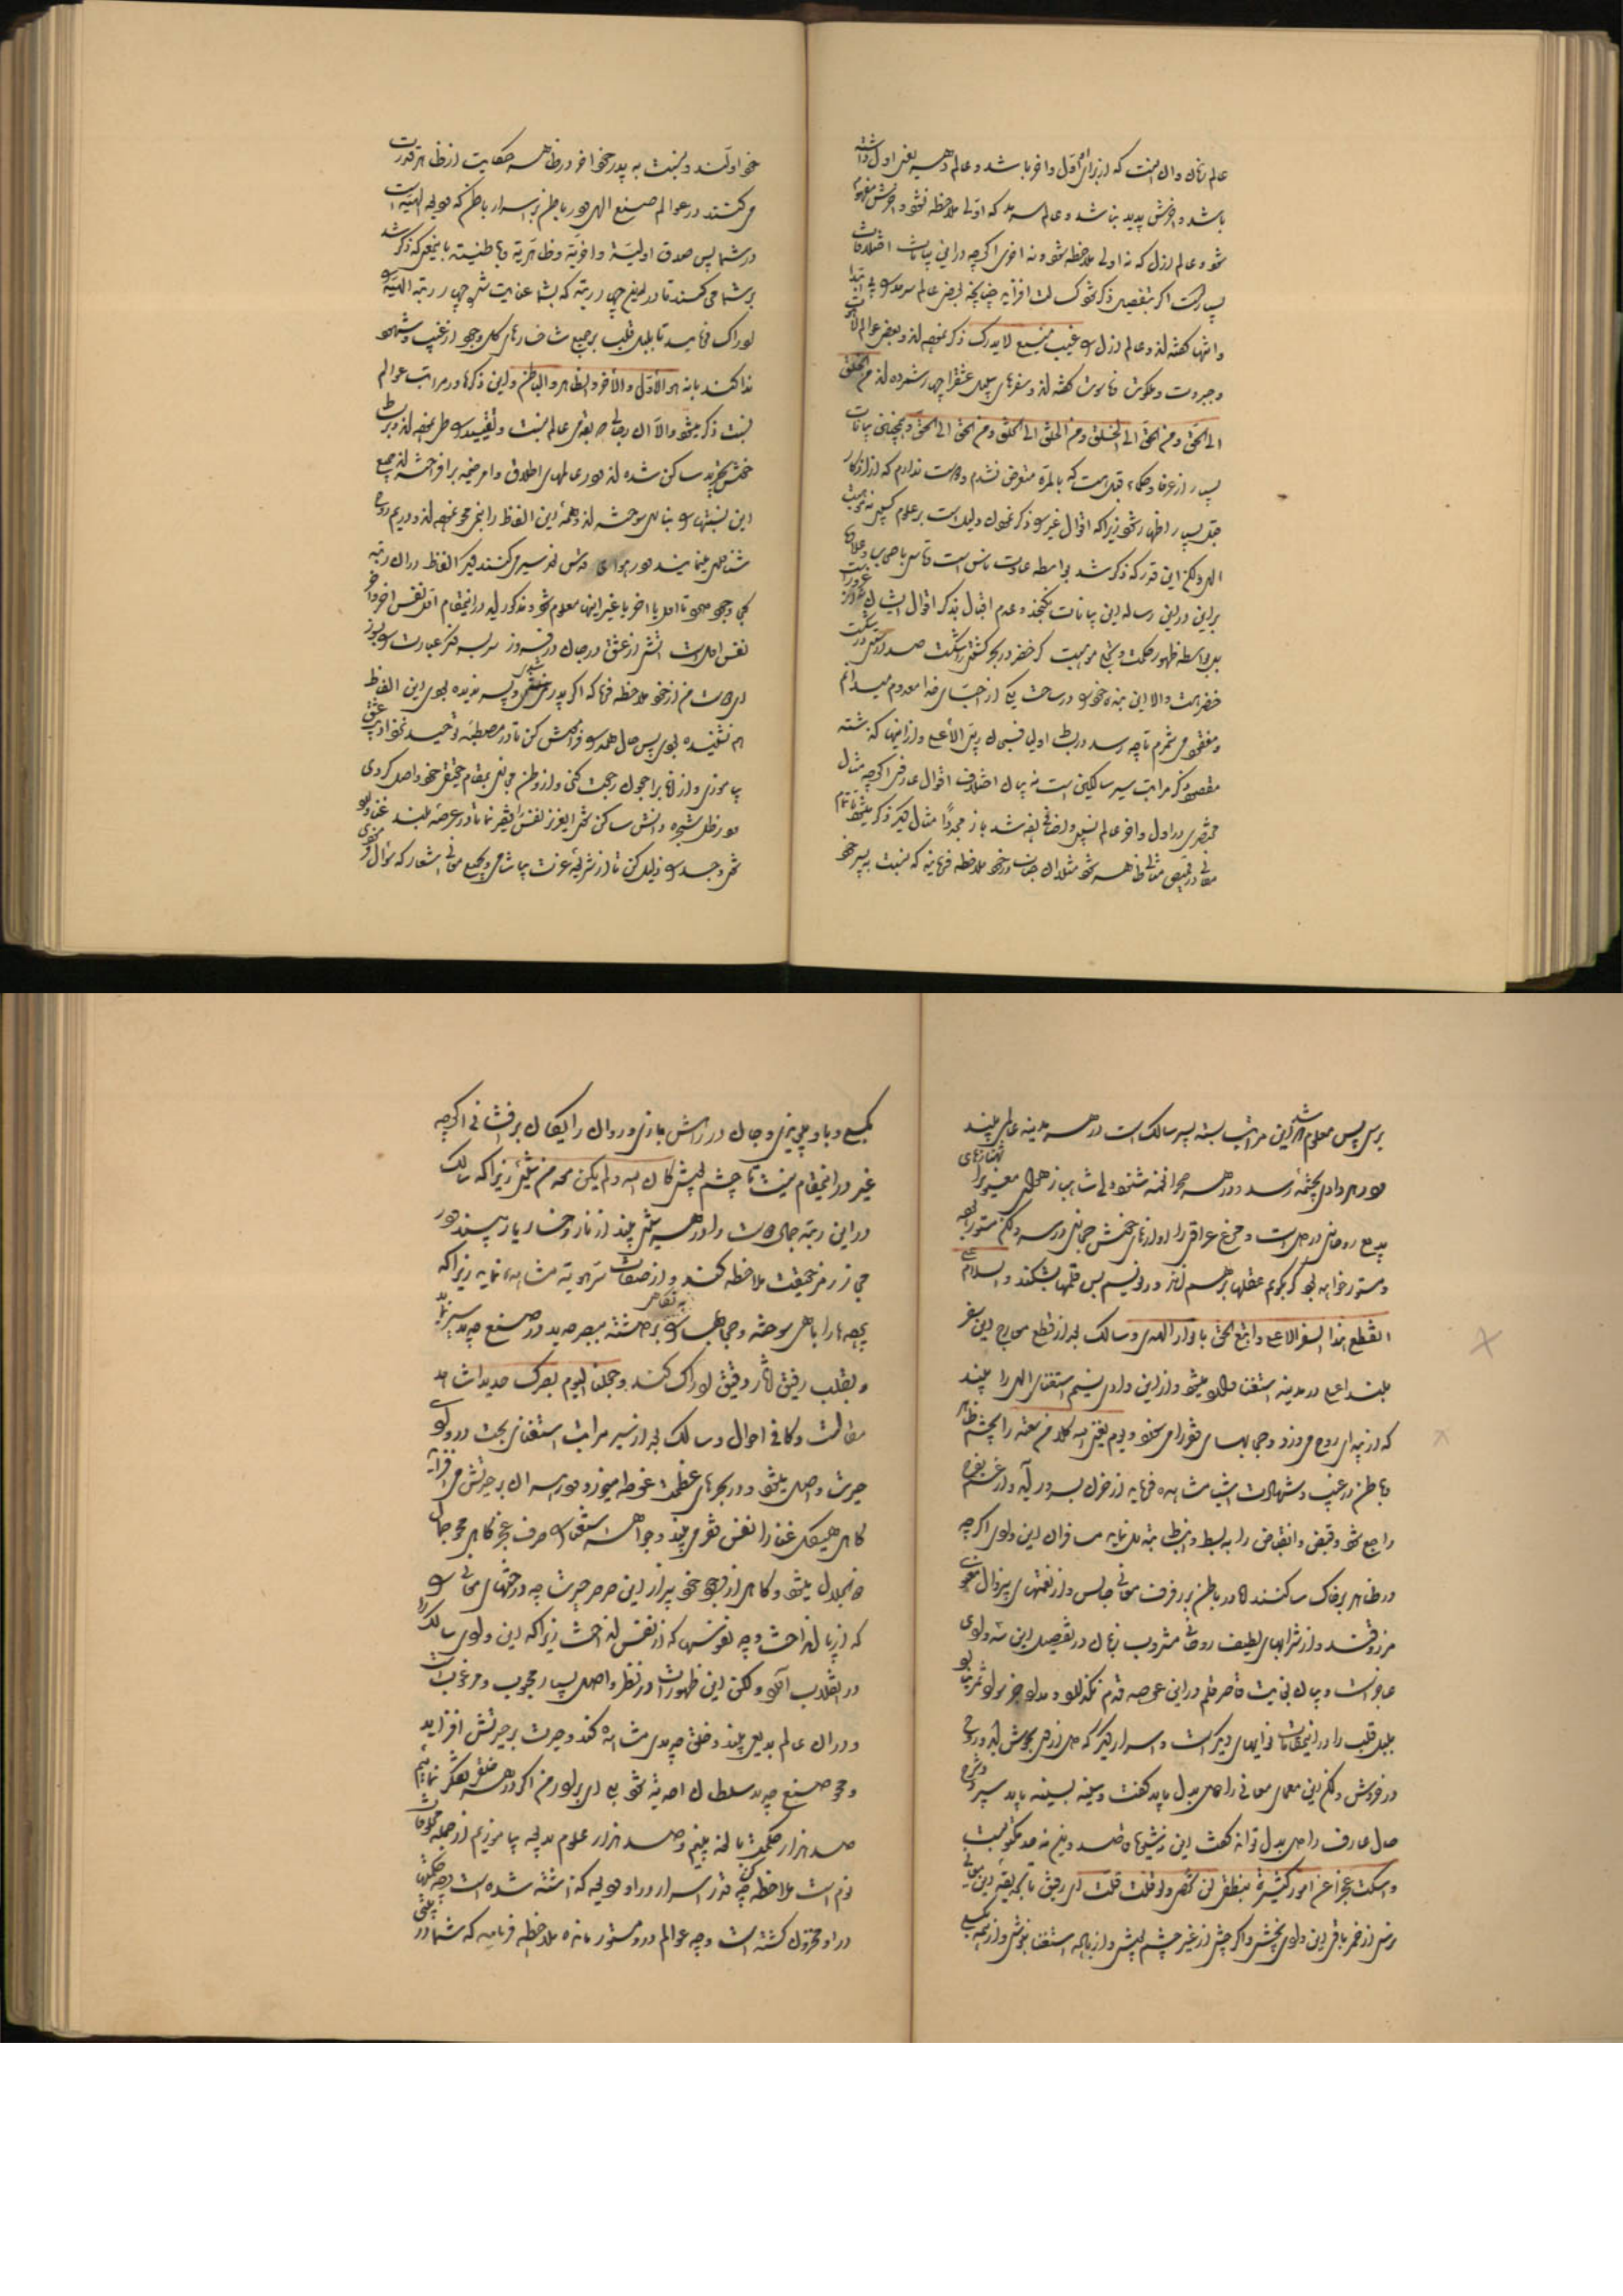 عالم زمان و آن اینست که از برای او اول و آخر باشد و عالم دهر یعنی اول داشته
باشد و آخرش پدید نباشد و عالم سرمد که اولی ملاحظه نشود و آخرش مفهوم
شود و عالم ازل که نه اولی ملاحظه شود و نه اخری اگرچه در این بیانات اختلافات
بسیار است اگر بتفصیل ذکر شود کسالت افزاید چنانچه بعضی عالم سرمد را بی ابتدا
و انتها گفته اند و عالم ازل را غیب منیع لا یدرک ذکر نموده اند و بعضی عوالم لاهوت
و جبروت و ملکوت و ناسوت گفته اند و سفرهای سبیل عشق را چهار شمرده اند من الخلق
الی الحق و من الحق الی الخلق و من الخلق الی الخلق و من الحق الی الحق و همچنین بیانات
بسیار از عرفا و حکمای قبل هست که بالمره متعرض نشدم و دوست ندارم که از اذکار
قبل بسیار اظهار شود زیرا که اقوال غیر را ذکر نمودن دلیل است بر علوم کسبی نه موهبت
الهی ولکن این قدر که ذکر شد بواسطه عادت ناس است و تاسی باصحاب و علاوه
براین در این رساله این بیانات نگنجد و عدم اقبال بذکر اقوال ایشان از غرور نیست
بلکه بواسطه ظهور حکمت و تجلی موهبت گر خضر در بحر کشتی را شکست صد درستی در شکست
خضر هست والا این بنده خود را در ساحت یکی از احبای خدا معدوم میدانم
و مفقود می شمرم تا چه رسد در بساط اولیا فسبحان ربی الاعلی و از اینها گذشته
مقصود ذکر مراتب سیر سالکین است نه بیان اختلاف اقوال عارفین اگرچه مثال
مختصری در اول و آخر عالم نسبی و اضافی زده شد باز مجددا مثال دیگر ذکر میشود تا تمام
معانی در قمیص مثالی ظاهر شود مثلا آن جناب در خود ملاحظه فرمایند که نسبت به پسر خود
خود اولند و نسبت به پدر خود آخر و در ظاهر حکایت از ظاهر قدرت
می کنند در عوالم صنع الهی و در باطن بر اسرار باطن که ودیعه الهیه است
در شما پس صدق اولیة و آخریة و ظاهریة و باطنیة باینمعنی که ذکر شد
بر شما می کند تا در این چهار رتبه که بشما عنایت شد چهار رتبه الهیه را
ادراک فرمایید تا بلبل قلب بر جمیع شاخسارهای گل وجود از غیب و شهود
ندا کند بانه هو الاول و الآخر و الظاهر و الباطن و این ذکرها در مراتب عوالم
نسبت ذکر میشود والا آن رجالی که بقدمی عالم نسبت و تقیید را طی نموده اند و بر بساط
خوش تجرید ساکن شده اند و در عالمهای اطلاق و امر خیمه برافراخته اند جمیع
این نسبتها را بناری سوخته اند و همه این الفاظ را بنمی محو نموده اند و در یم روح
شناوری مینمایند و در هوای قدس نور سیر می کنند دیگر الفاظ در آن رتبه
کی وجود دارد تا اول یا آخر یا غیر اینها معلوم شود و مذکور آید در اینمقام اول نفس آخر و آخر
نفس اول است آتشی از عشق در جان برفروز سر بسر فکر و عبارت را بسوز
ای دوست من از خود ملاحظه فرما که اگر پدر نمیشدی و پسر ندیده بودی این الفاظ
هم نشنیده بودی پس حال همه را فراموش کن تا در مصطبه توحید نزد ادیب عشق
بیاموزی و از انا براجعون رجعت کنی و از وطن مجازی بمقام حقیقی خود واصل گردی
و در ظل شجره دانش ساکن شوی ای عزیز نفس را فقیر نما تا در عرصه بلند غنا وارد
شوی و جسد را ذلیل کن تا از شریعه عزت بیاشامی و بجمیع معانی اشعار که سؤال فرمودی
برسی پس معلوم شد این مراتب بسته بسیر سالک است در هر مدینه عالمی بیند
و در هر وادی بچشمه رسد و در هر صحرا نغمه شنود ولی شاهباز هوای معنوی را شهنازهای
بدیع روحانی در دل است و مرغ عراقی را آوازهای خوش حجازی در سر ولکن مستور بود
و مستور خواهد بود گر بگویم عقلها بر هم زند ور نویسم بس قلمها بشکند و السلام علی
من قطع هذا السفر الاعلی و اتبع الحق بانوار الهدی و سالک بعد از قطع معارج این سفر
بلند اعلی در مدینه استغنا وارد میشود و از این وادی نسیم استغنای الهی را بیند
که از بیدای روح می وزد و حجابهای فقر را می سوزد و یوم یغنی الله کلا من سعته را بچشم ظاهر
و باطن در غیب و شهادت اشیا مشاهده فرماید از حزن بسرور آید و از غم بفرح
راجع شود و قبض و انقباض را به بسط و انبساط تبدیل نماید مسافران این وادی اگرچه
در ظاهر بر خاک ساکنند اما در باطن بر رفرف معانی جالس و از نعمتهای بیزوال معنوی
مرزوقند و از شرابهای لطیف روحانی مشروب زبان در تفصیل این سه وادی
عاجز است و بیان بغایت قاصر قلم در این عرصه قدم نگذارد و مداد جز سواد ثمر نیارد
بلبل قلب را در اینمقامات نواهای دیگر است و اسرار دیگر که دل از او بجوش آید و روح
در خروش ولکن این معمای معانی را دل بدل باید گفت و سینه بسینه باید سپرد و شرح
حال عارف را دل بدل تواند گفت این نه شیوه قاصد و این نه حد مکتوب است
و اسکت عجزا عن امور کثیرة بنطقی لن تحصی ولو قلت قلت ای رفیق تا بحدیقه این معانی
نرسی از خمر باقی این وادی نچشی و اگر چشی از غیر چشم پوشی و از باده استغنا بنوشی و از همه بگسلی
بگسلی و باو پیوندی و جان در رهش بازی و روان رایگان برفشانی اگرچه
غیر در اینمقام نیست تا چشم پوشی کان الله و لم یکن معه من شیئ زیرا که سالک
در این رتبه جمال دوست را در هر شیئ بیند از نار رخسار یار بیند و در
مجاز رمز حقیقت ملاحظه کند و از صفات سر هویه مشاهده نماید زیرا که
پرده ها را باهی سوخته و حجابها را به نگاهی برداشته ببصر حدید در صنع جدید سیر نماید
و بقلب رقیق آثار دقیق ادراک کند و جعلنا الیوم بصرک حدیدا شاهد
مقالست و کافی احوال و سالک بعد از سیر مراتب استغنای بحت در وادی
حیرت واصل میشود و در بحرهای عظمت غوطه میخورد و در هر آن بر حیرتش می افزاید
گاهی هیکل غنا را نفس فقر می بیند و جوهر استغنا را صرف عجز گاهی محو جمال
ذوالجلال میشود و گاهی از وجود خود بیزار این صرصر حیرت چه درختهای معانی را
که از پا انداخت و چه نفوسها که از نفس انداخت زیرا که این وادی سالک را
در انقلاب آورد ولکن این ظهورات در نظر واصل بسیار محبوب و مرغوبست
و در آن عالم بدیعی بیند و خلق جدیدی مشاهده کند و حیرت بر حیرتش افزاید
و محو صنع جدید سلطان احدیه شود بلی ای برادر من اگر در هر خلقی تفکر نماییم
صد هزار حکمت بالغه بینیم و صد هزار علوم بدیعه بیاموزیم از جمله مخلوقات
نوم است ملاحظه کن چه قدر اسرار در او ودیعه گذاشته شده است و چه حکمتها
در او مخزون گشته است و چه عوالم در او مستور مانده ملاحظه فرمایید که شما در بیتی